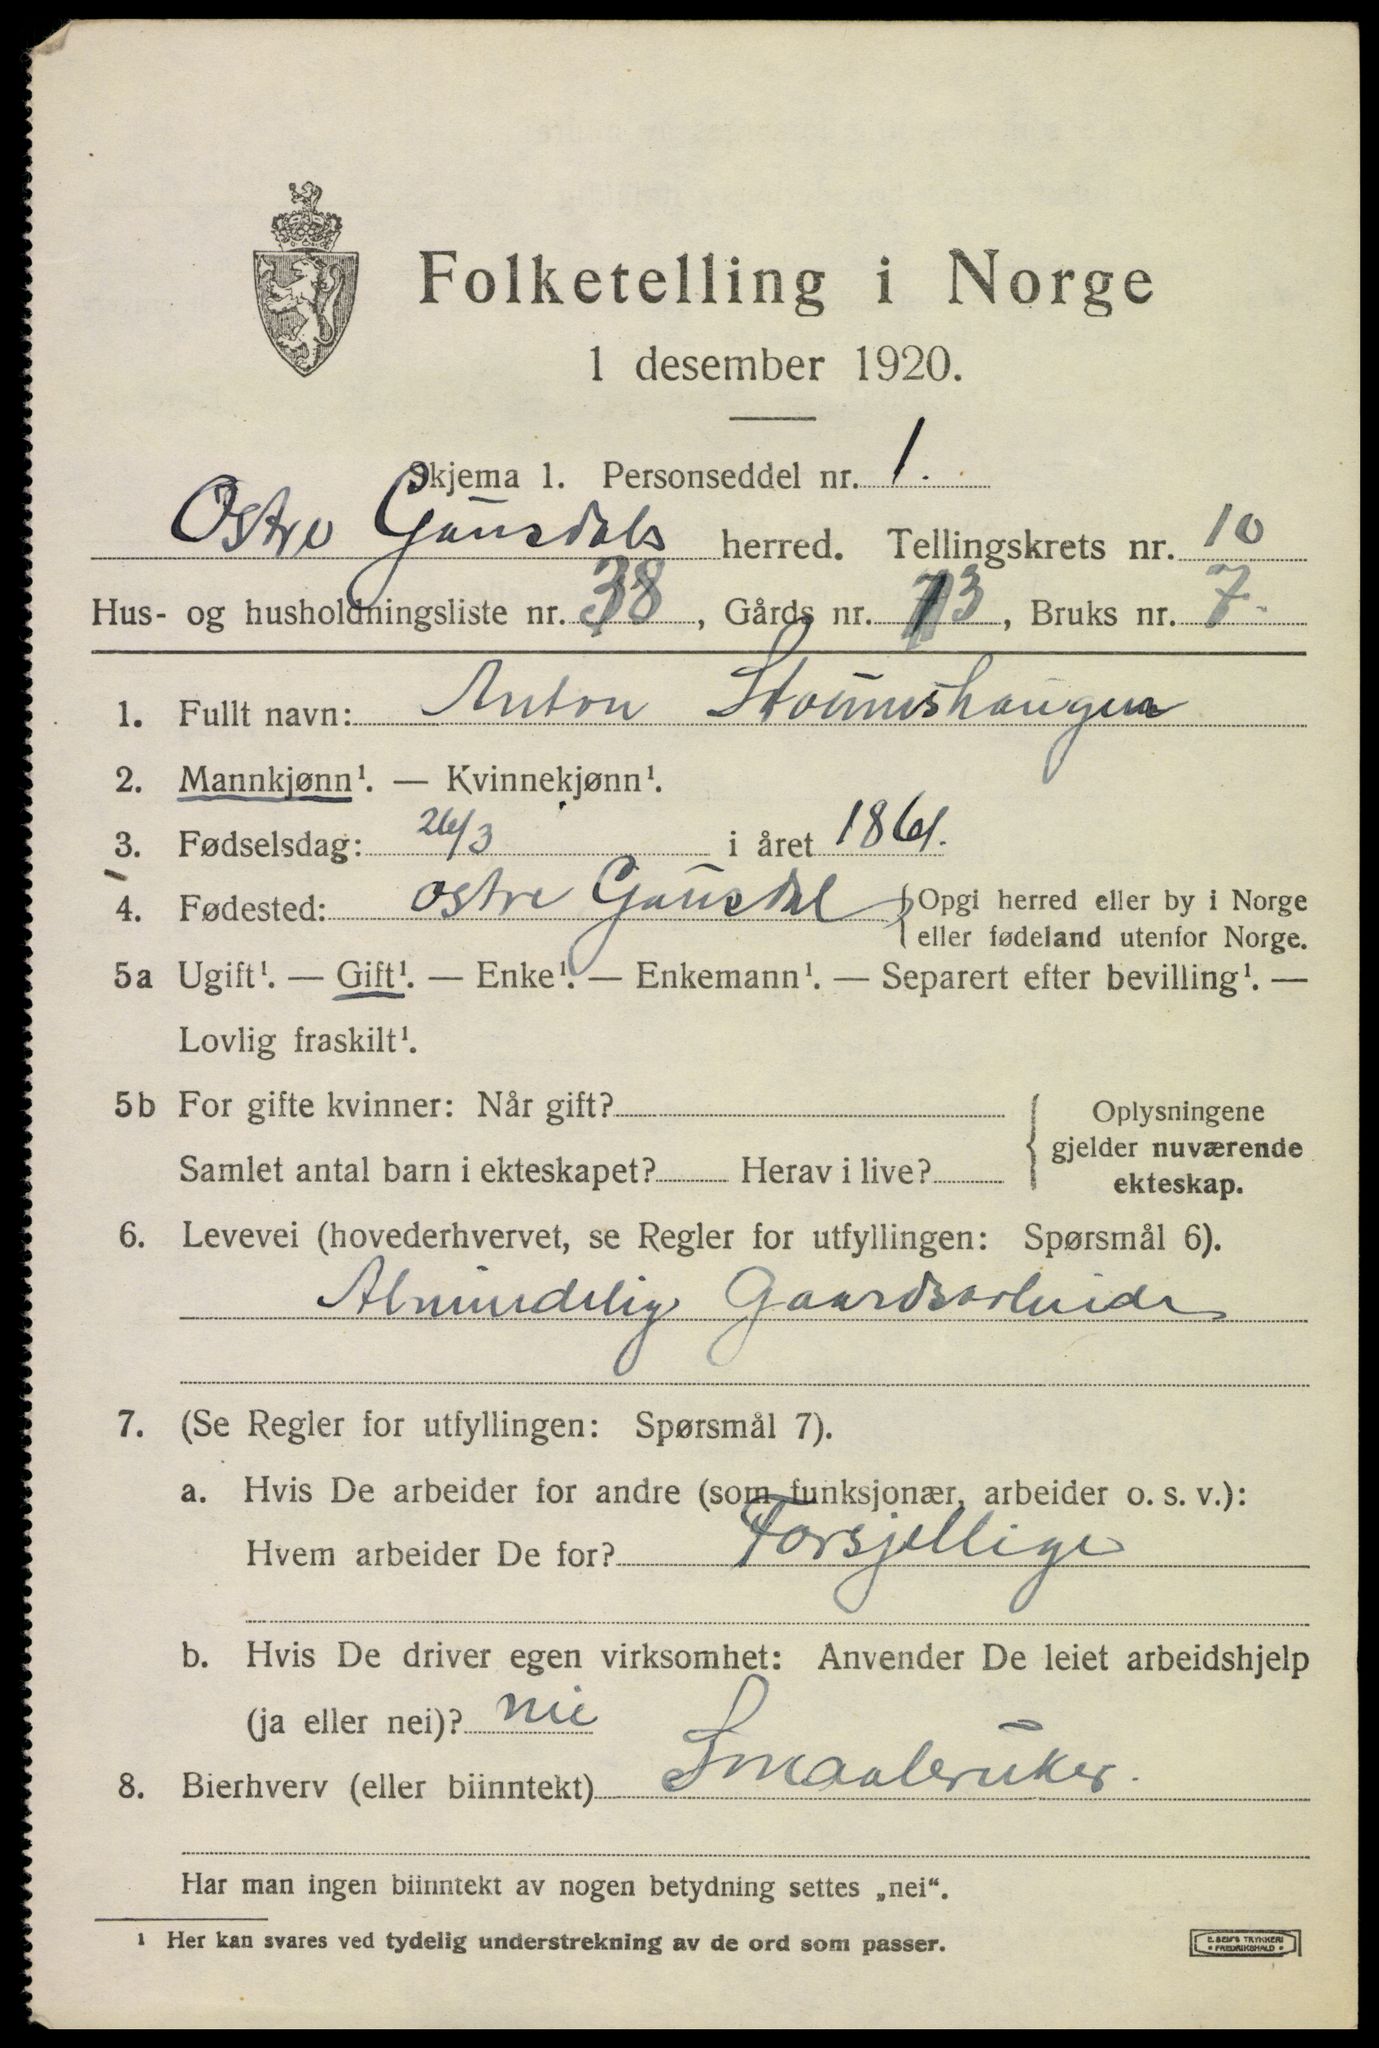 Folketelling i Norge
1 desember 1920.
Skjema 1. Personseddel nr. 1.
Østre Gausdals herred. Tellingskrets nr. 10
Hus- og husholdningsliste nr. 38, Gårds nr. 73, Bruks nr. 7.
1. Fullt navn: Anton
2. Mannkjønn¹. — Kvinnekjønn¹.
3. Fødselsdag: 26/3 i året 1861.
4. Fødested: østre Gausdal { Opgi herred eller by i Norge
eller fødeland utenfor Norge.
5a Ugift¹. — Gift¹. — Enke¹. — Enkemann¹. — Separert efter bevilling¹. —
Lovlig fraskilt¹.
5b For gifte kvinner: Når gift?
Samlet antal barn i ekteskapet? Herav i live?
Oplysningene
gjelder nuværende
ekteskap.
6. Levevei (hovederhvervet, se Regler for utfyllingen: Spørsmål 6).
Almindelig Gaardsarbeide
7. (Se Regler for utfyllingen: Spørsmål 7).
a. Hvis De arbeider for andre (som funksjonær, arbeider o. s. v.):
Hvem arbeider De for? Forsjellige
b. Hvis De driver egen virksomhet: Anvender De leiet arbeidshjelp
(ja eller nei)? nei
8. Bierhverv (eller biinntekt) Smaabruker.
Har man ingen biinntekt av nogen betydning settes „nei“.
¹ Her kan svares ved tydelig understrekning av de ord som passer.
E. SEM'S TRYKKERI
• FREDRIKSHALD •